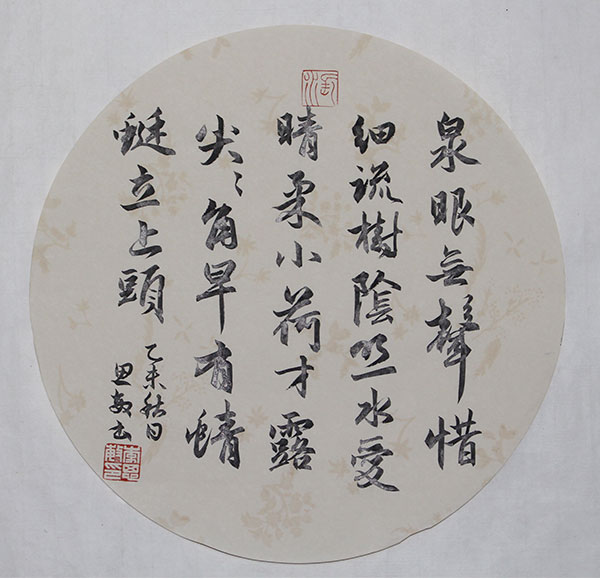 泉眼無聲惜
細流樹陰照水愛
晴柔小荷才露
尖〻角早有蜻
蜓立上頭
乙未秋月
思敏書